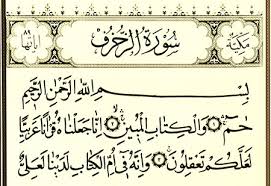 مكية
سُورَةُ الزُّخْرُفِ
آياتها ٨٩
بِسْمِ اللهِ الرَّحْمٰنِ الرَّحِيمِ
حمٓ ﴿١﴾ وَالْكِتَابِ الْمُبِينِ ﴿٢﴾ إِنَّا جَعَلْنَاهُ قُرْءَانًا عَرَبِيًّا
لَعَلَّكُمْ تَعْقِلُونَ ﴿٣﴾ وَإِنَّهُ فِي أُمِّ الْكِتَابِ لَدَيْنَا لَعَلِيٌّ